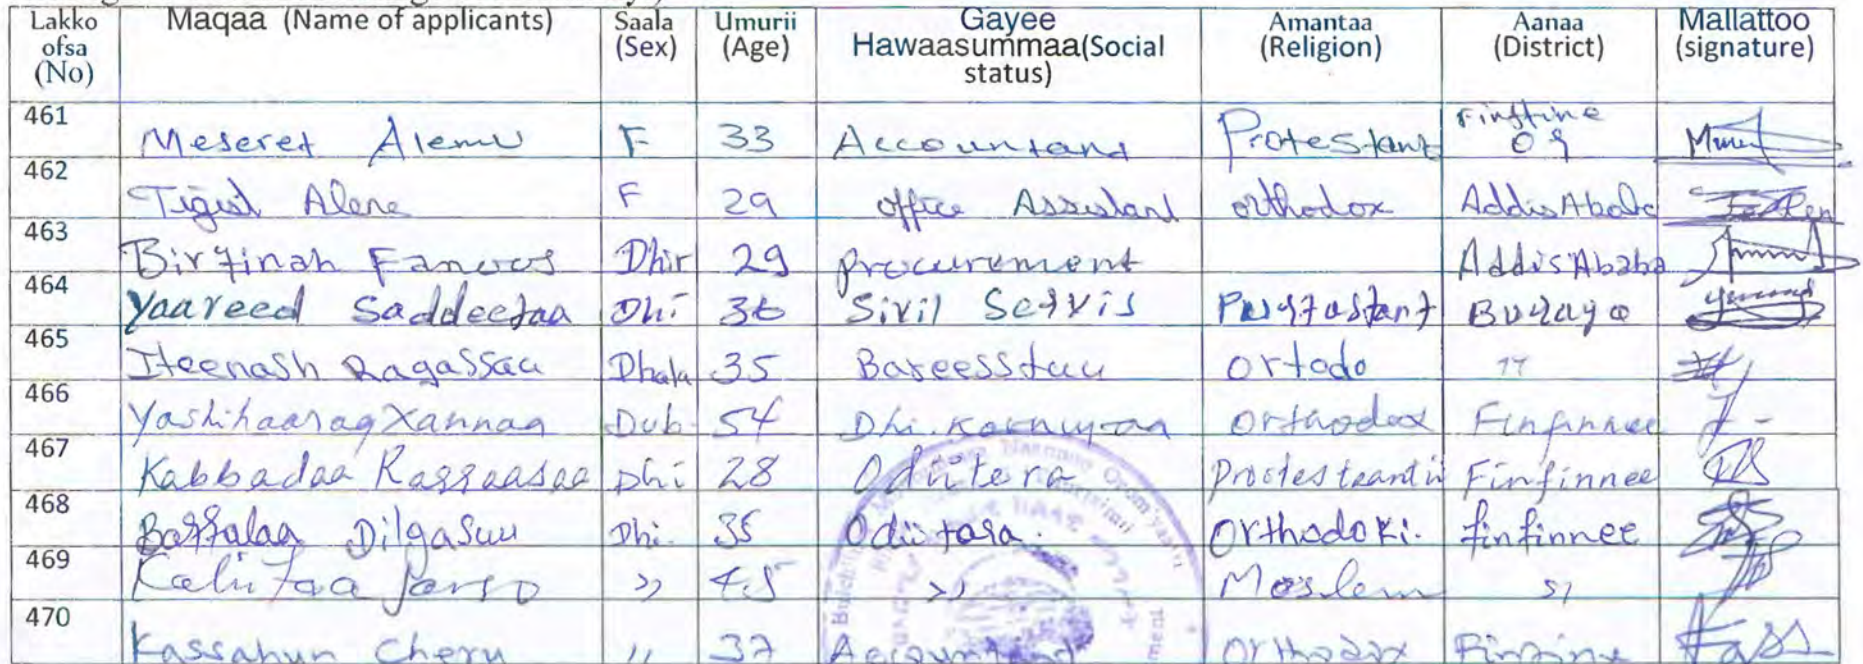 Lakko ofsa (No) Maqaa (Name of applicants) Saala (Sex) Umurii (Age) Gayee Hawaasummaa(Social status) Amantaa (Religion) Aanaa (District) Mallattoo (signature)
461 Meseret Alemu F 33 Accountand Protestant Finftine
462 Tigist Alene F 29 office Assistant orthodox Addis Ababa
463 Birqinah Fanoos Dhir 29 procurement Addis Ababa
464 Yaareed Saddeetaa Dhi 36 Sivil Servis Burayo
465 Iteenash Ragassaa Dhala 35 Bareesstuu Ortodo "
466 Yashihaarag Xannaa Dub 54 Dhi. Orthodox Finfinnee
467 Kabbadaa Dhi 28 Odiitera Finfinnee
468 Dilgasuu Dhi. 35 Odiitara. Orthodoki. finfinnee
469 " 45 " Moslem "
470 Kassahun Cheru " 37 Accountant Orthodox Finfine